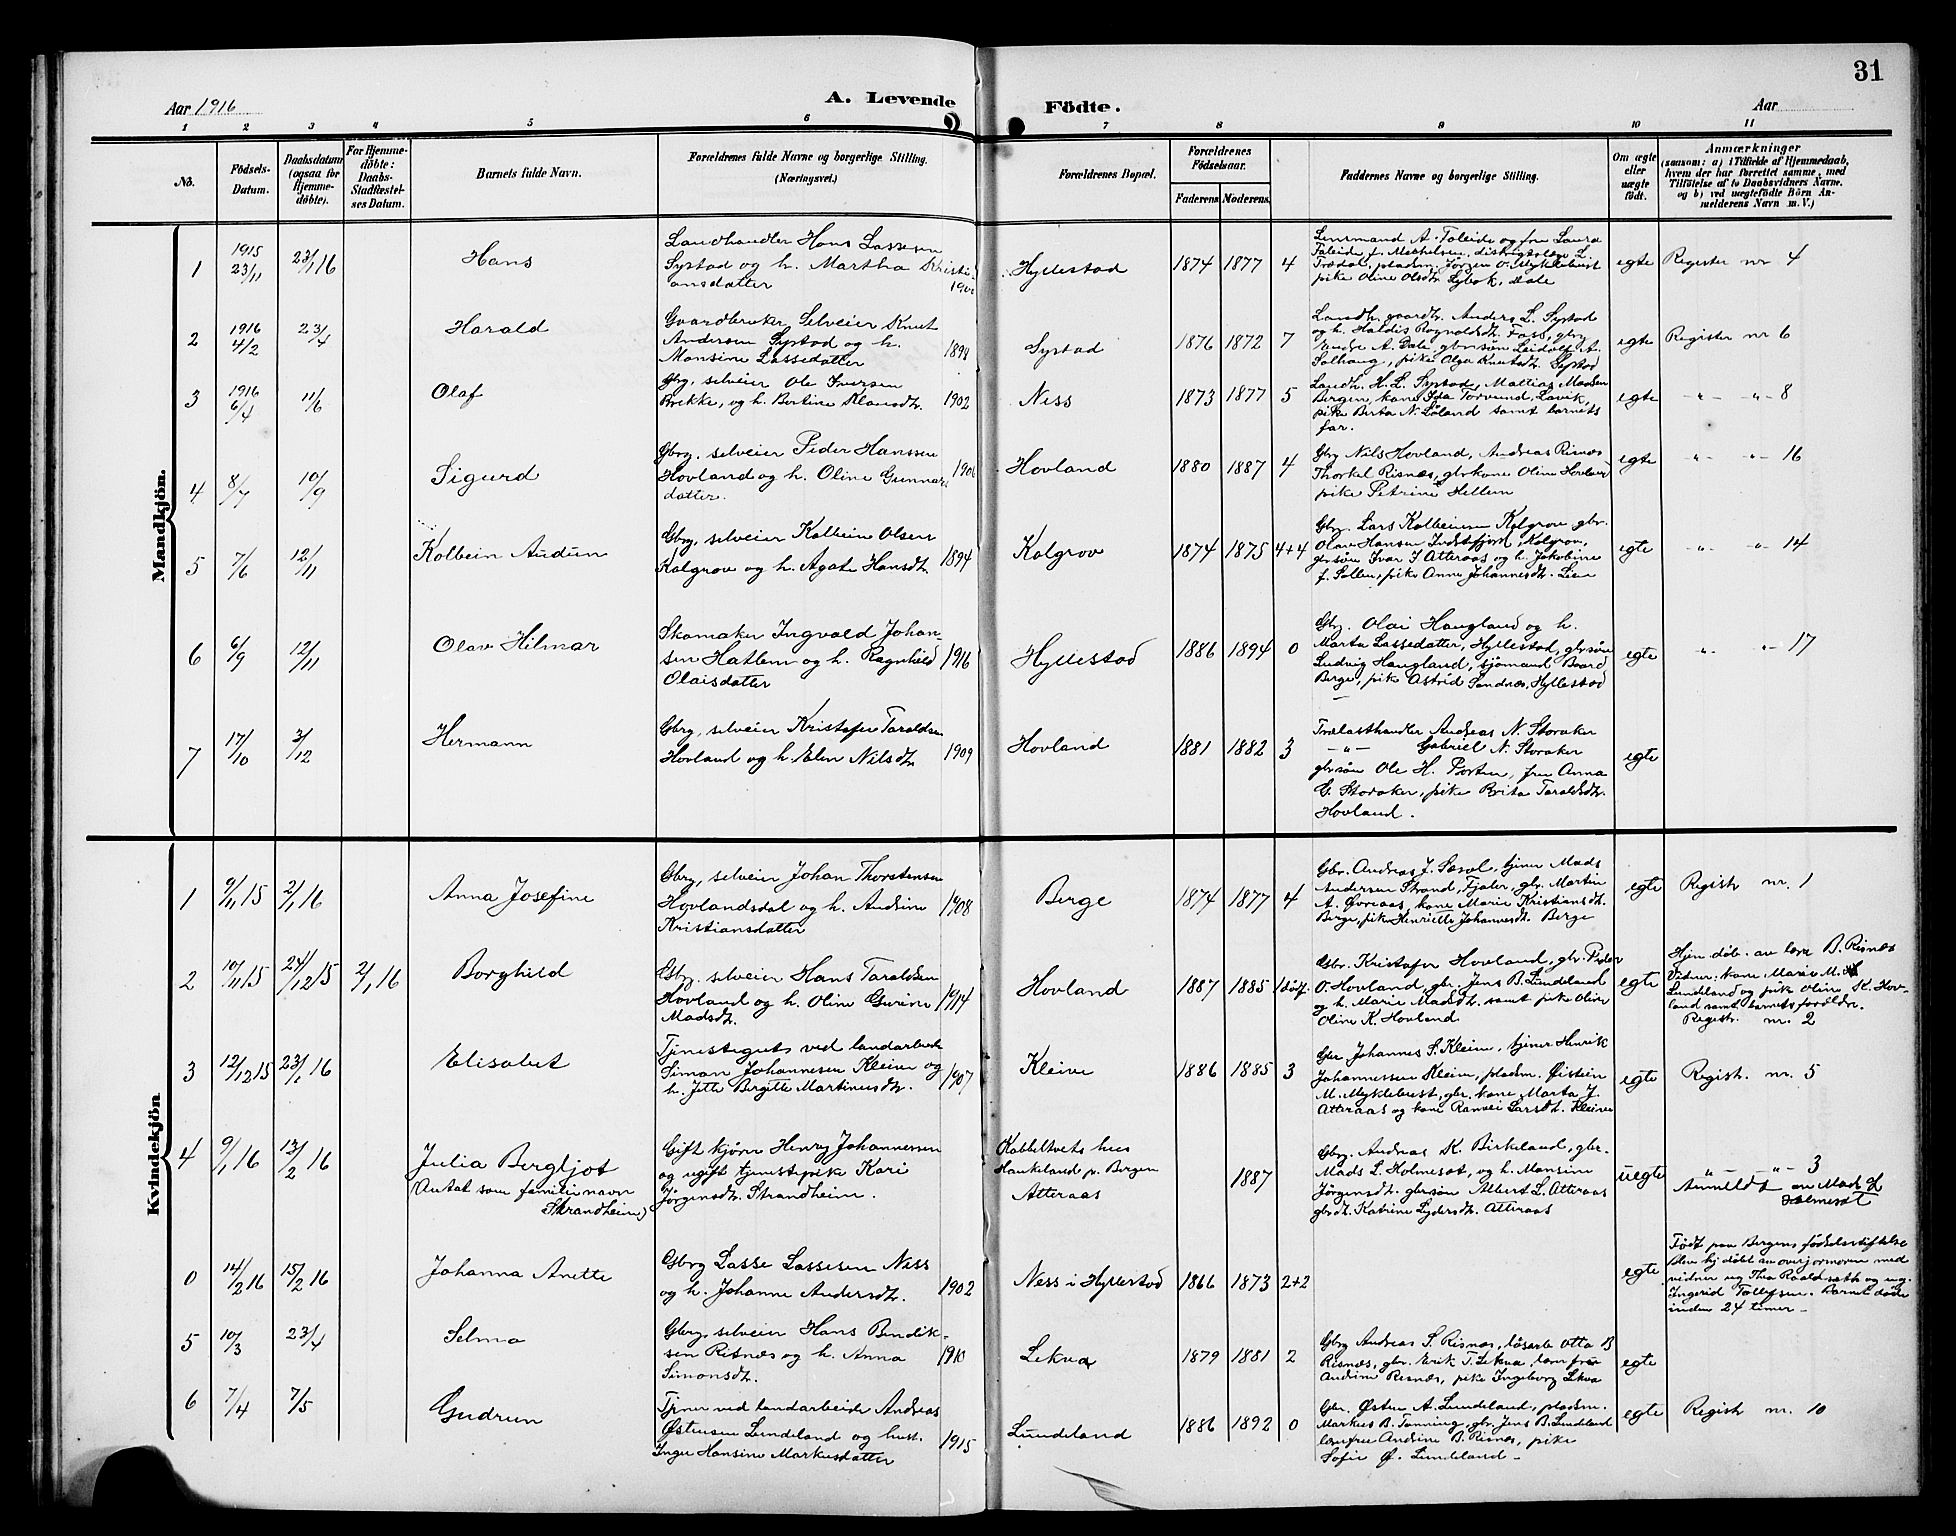 31
Aar 1916
A. Levende
Födte.
Aar
1 2 3 4 5 6 7 8 9 10 11
No.
Födsels-
Datum.
Daabsdatum
(ogsaa for
Hjemme-
döbte).
For Hjemme-
döbte:
Daabs-
Stadfæstel-
ses Datum.
Barnets fulde Navn.
Forældrenes fulde Navne og borgerlige Stilling.
(Næringsvei.)
Forældrenes Bopæl.
Forældrenes
Födselsaar.
Faderens.
Moderens.
Faddernes Navne og borgerlige Stilling.
Om ægte
eller
uægte
födt.
Anmærkninger
(saasom: a) i Tilfælde af Hjemmedaab,
hvem der har forrettet samme, med
Tilföielse af to Daabsvidners Navne,
og b) ved uægtefödte Börn An-
melderens Navn m. V.)
Mandkjön.
1
1915
23/11
23/1 16
Hans
Landhandler Hans Lassesen
Systad og h. Martha Kristi-
ansdatter
Hyllestad
1874 1877 4
Lensmand A. Taleide og fru Laura
Taleide f. Mikkelsen, distriktslæge L.
Trædal, pladsm. Jørgen O. Myklebust
pike Oline Olsdtr. Sybok, Dale
egte
Register nr 4
2
1916
4/2
23/4
Harald
Gaardbruker Selveier Knut
Andersen Systad og h.
Monsine Lassedatter
1898
Systad
1876 1872 7
Landh. gaardbr. Anders L. Systad
og h. Haldis Ragnvaldsdtr. Fass, gbr
Endre A. Dale, gbrsøn Leidolf A.
Solhaug, pike Olga Knutsdtr. Systad
egte
Register nr 6
3
1916
6/4
11/6
Olaf
Gbrg. selveier Ole Iversen
Brekke, og h. Bertine Klausdtr.
1902
Ness
1873 1877 5
Landh. H. L. Systad, Mattias Madsen
Bergen, kone Ida Torvund, Lavik,
pike Berta N. Løland samt barnets
far.
egte
-"- -"- 8
4
8/7
10/9
Sigurd
Gbrg. selveier Peder Hanssen
Hovland og h. Oline Gunnars
datter.
1906
Hovland
1880 1887 4
Gbrg Nils Hovland, Andreas Risnæs
Thorkel Risnæs, gbrkone Oline Hovland
pike Petrine Hellem
egte
-"- -"- 16
5
7/6
12/11
Kolbein Audun
Gbrg. selveier Kolbein Olsen
Kolgrov og h. Agate Hansdtr.
1894
Kolgrov
1874 1875 4+4
Gbrg. Lars Kolbeinsen Kolgrov gbr.
Olav Hansen Indrefjord, Kolgrov,
gbrsøn Ivar I. Atteraas og h. Jakobine
f. Sollen, pike Anne Johannesdtr. Lien
egte
" " 14
6
6/9
12/11
Olav Hilmar
Skomaker Ingvald Johan-
sen Hatlem og h. Ragnhild
Olaisdatter
1916
Hyllestad
1886 1894 0
Gbrg. Olai Haugland og h.
Marta Lassedatter, Hyllestad, gbrsøn
Ludvig Haugland, sjømand Baard
Berge, pike Astrid Sandnæs, Hyllestad
egte
-"- -"- 17
7
17/10
3/12
Hermann
Gbrg. selveier Kristofer Taraldsen
Hovland og h. Elen Nilsdtr.
1909
Hovland
1881 1882 3
Trælasthandler Andreas N. Storaker
-"- Gabriel N. Storaker
gbrsøn Ole H. Porten, fru Anna
G. Storaker, pike Brita Taraldsdtr.
Hovland.
egte
Kvindekjön
1
9/11 15
2/1 16
Anna Josefine
Gbrg. selveier Johan Thorstensen
Hovlandsdal og h. Andrine
Kristiansdatter
1908
Berge
1874 1877 4
Gbr. Andreas J. Sæsol, tjener Mads
Andersen Strand, Fjaler, gbr. Martin
A. Øvreaas, kone Marie Kristiansdtr.
Berge, pike Henriette Johannesdtr. Berge
egte
Registr nr. 1
2
10/11 15
24/12 15
2/1 16
Borghild
Gbrg. selveier Hans Taraldsen
Hovland og h. Oline Gurine
Madsdtr.
1914
Hovland
1887 1885 1 dødf.
Gbr. Kristofer Hovland, gbr. Peder
O. Hovland, gbr. Jens B. Lundeland
og h. Marie Madsdtr. samt pike Oline
Oline K. Hovland
egte
Hjem. døb. av lærer B. Risnæs
Vidner: kone Marie M.
Lundeland og pike Oline K. Hov-
land samt barnets forældre.
Registr. nr. 2
3
12/12 15
23/1 16
Elisabet
Tjenestegut ved landarbeide
Simon Johannesen Kleive og
h. Jette Birgitte Martinusdtr.
1907
Kleive
1886 1885 3
Gbr Johannes S. Kleive, tjener Henrik
Johannessen Kleive, pladsm. Øistein
M. Myklebust, gbr. kone Marta J.
Atteraas og kone Ranvei Larsdtr. Kleive
egte
Registr. nr. 5
4
9/1 16
13/2 16
Julia Bergljot
(Antat som familienavn
Strandheim)
Gift kjører Henry Johannesen
og ugift tjenestpike Kari
Jørgensdtr. Strandheim.
Kabbeltvets hus
Haukeland p. Bergen
Atteraas
1887
Gbrg. Andreas K. Birkeland, gbr.
Mads L. Holmesæt, og h. Monsine
Jørgensdtr. gbrsøn Albert L. Atteraas
gbrdtr. Katrine Lydersdtr. Atteraas
uegte
-"- -"- 3
Anmeldt av Mads L
Holmesæt
0
14/2 16
15/2 16
Johanna Anette
Gbrg Lasse Lassesen Ness
og h. Johanne Andersdtr.
1902
Ness i Hyllestad
1866 1873 2+2
egte
Født paa Bergens fødselsstiftelse
Blev hj. døbt av overjormoren med
vidner ug. Thea Roaldseth og ug.
Ingerid Tollefsen. Barnet døde
inden 24 timer -
5
10/3
23/4
Selma
Gbrg. selveier Hans Bendik-
sen Risnæs og h. Anna
Simonsdtr.
1910
Lekva
1879 1881 2
Gbrg Andreas S. Risnæs, løsarb. Otta B
Risnæs, gbr. Erik T. Lekva, lærerfrue
Andrine Risnæs, pike Ingeborg Lekva
egte
6
7/4
7/5
Gudrun
Tjener ved landarbeide Andreas
Østensen Lundeland og hust.
Inga Hansine Markusdatter
1915
Lundeland
1886 1892 0
Gbr. Østen A. Lundeland, pladsm.
Markus B. Tanning, gbr. Jens B. Lundeland
lærerfrue Andrine B. Risnæs, pike
Sofie Ø. Lundeland -
egte
Registr nr. 10